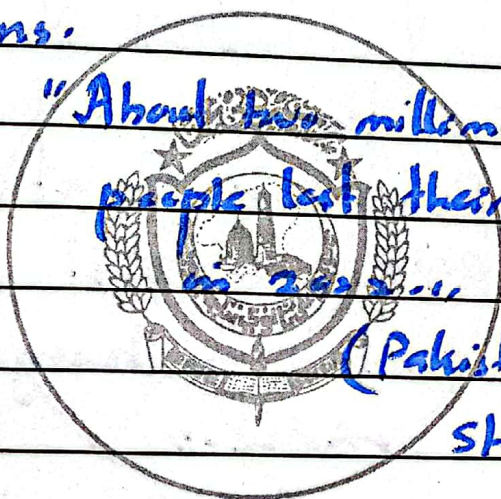 ns.
"About two million
people lost their
in 2022..."
(Pakist
st